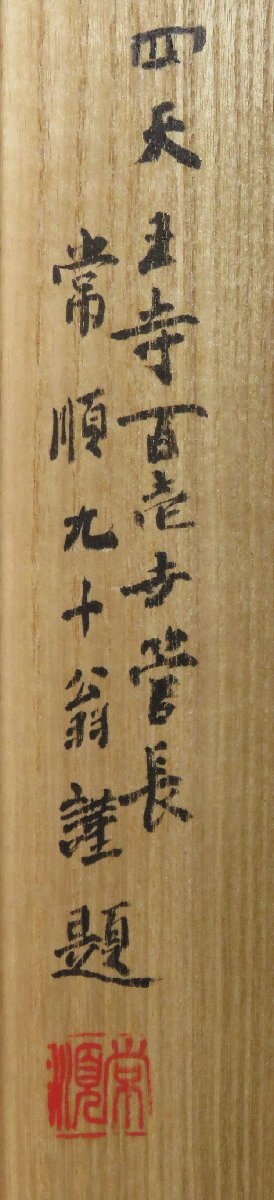 四天王寺百壱世管長
常順九十翁謹題
常順